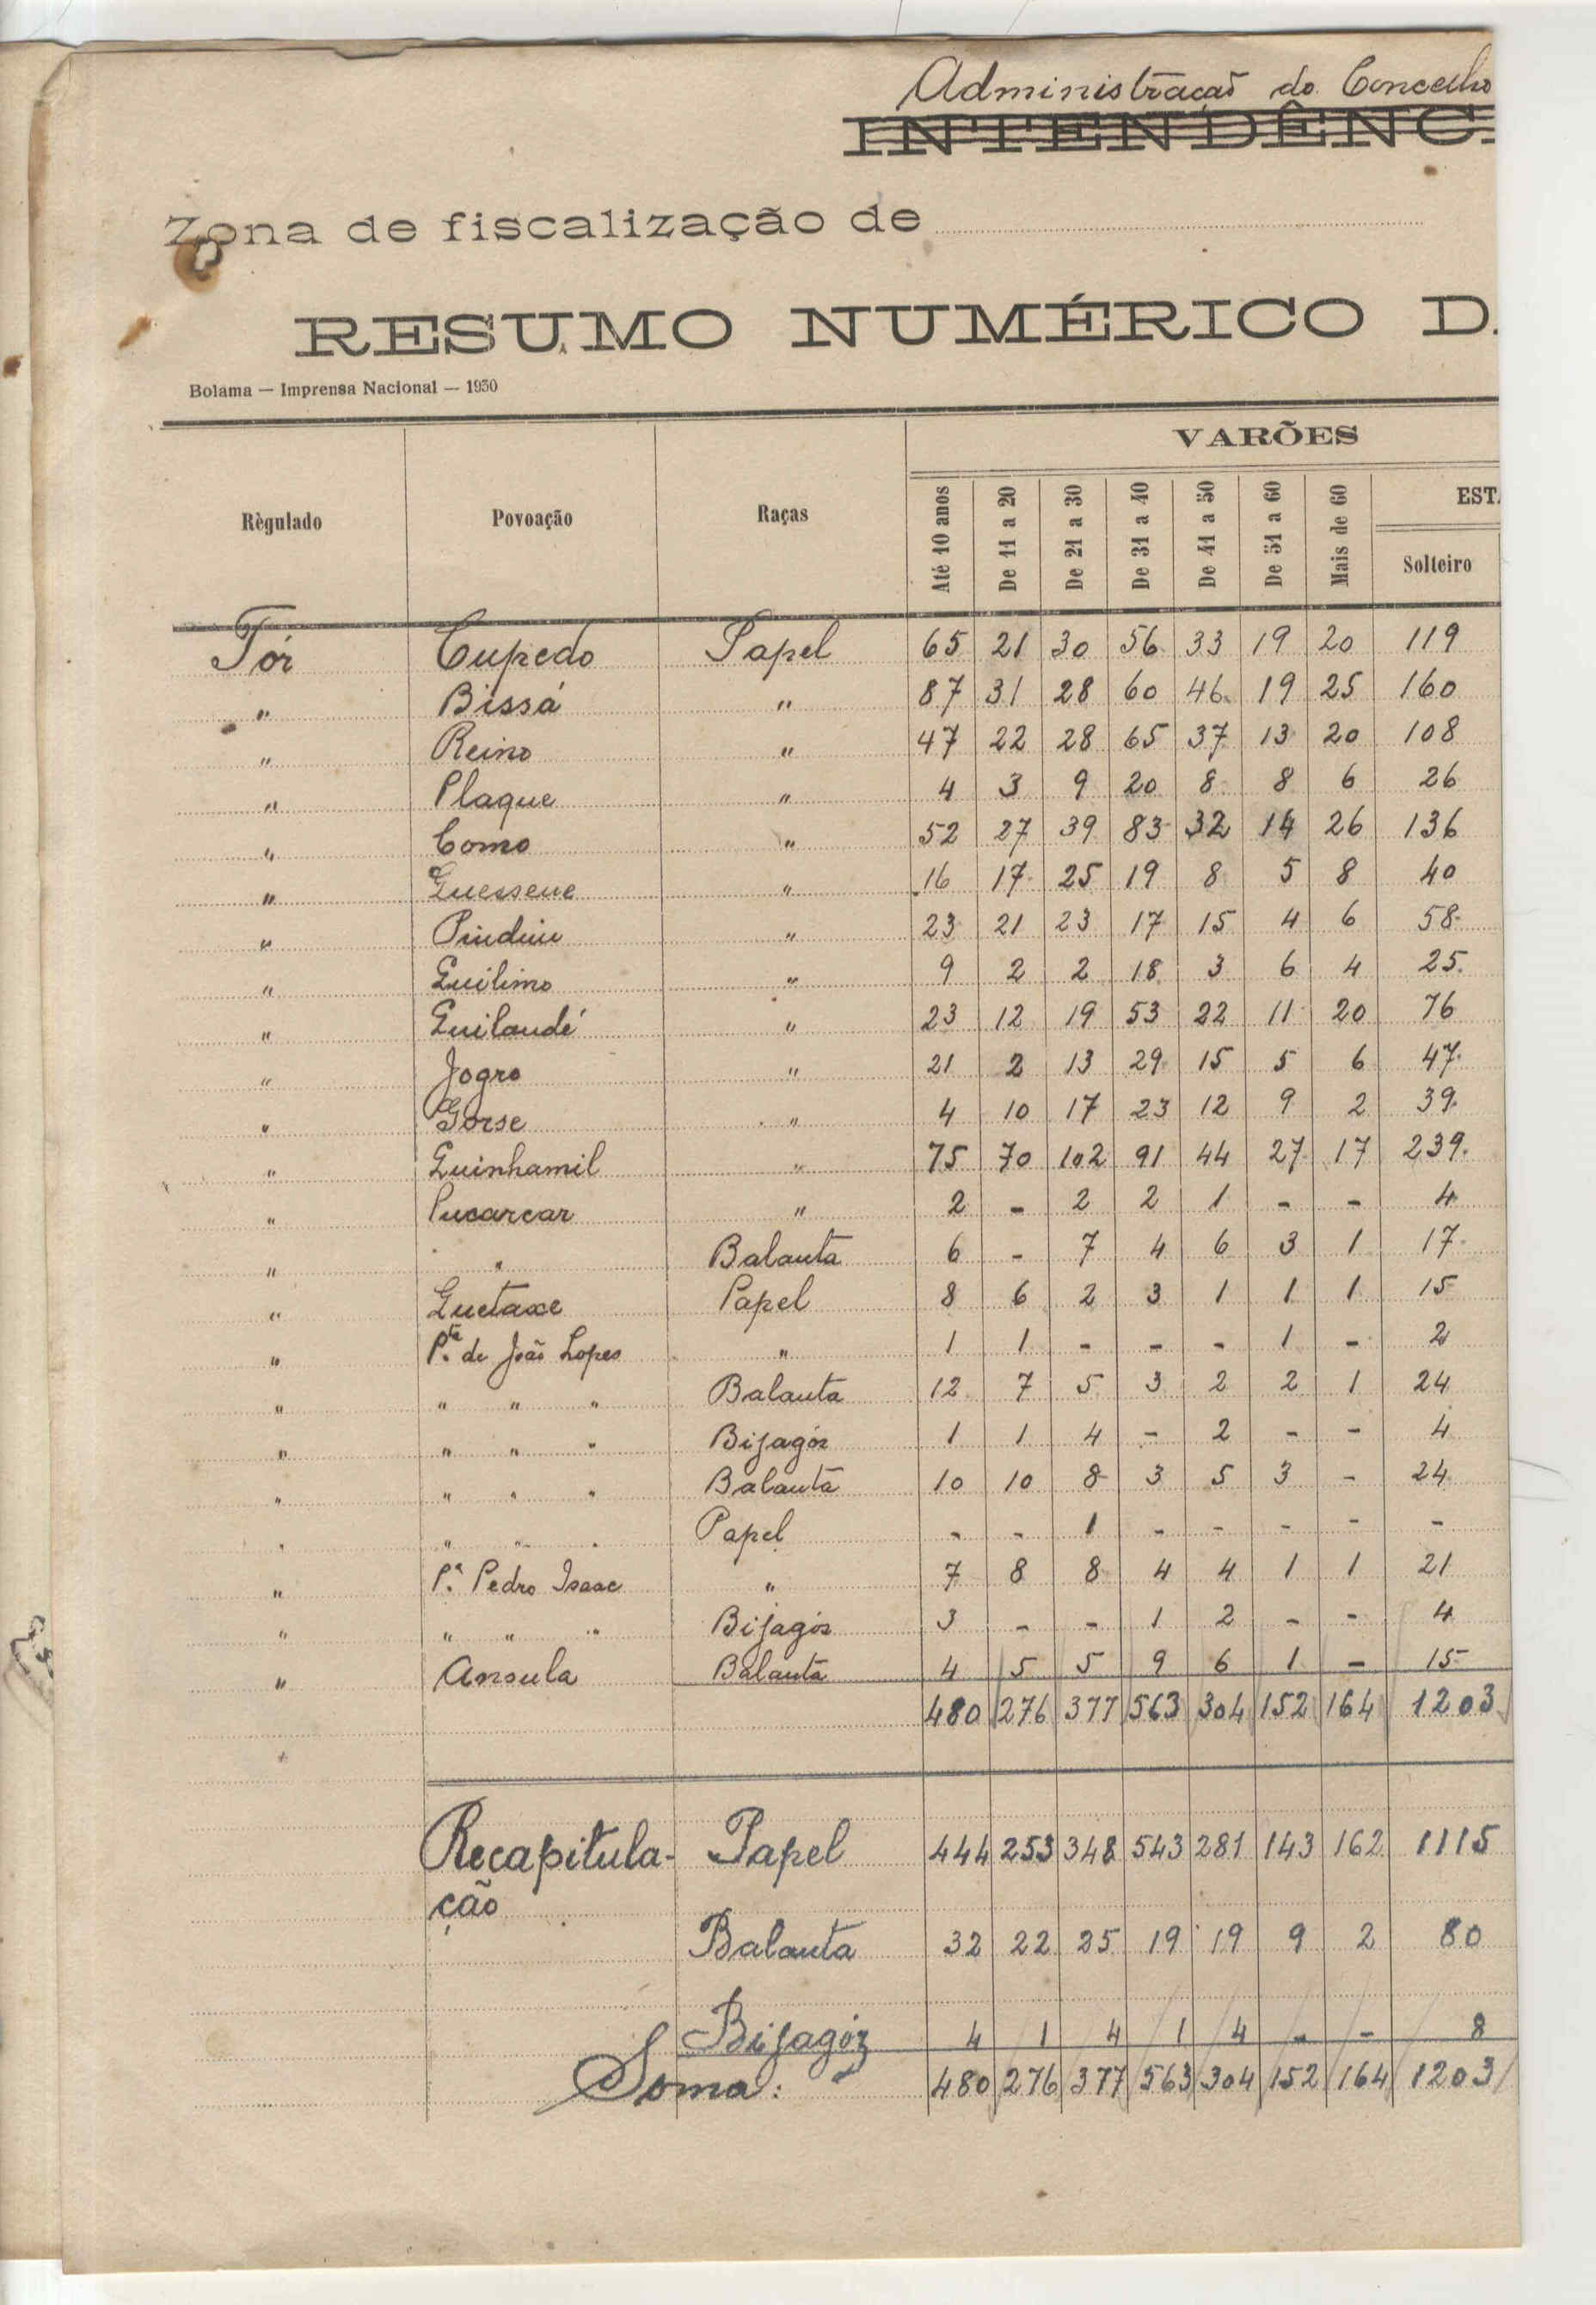 Administração do Concelho
INTENDÊNC
Zona de fiscalização de
RESUMO NUMÉRICO D
Bolama — Imprensa Nacional — 1930
VARÕES
Règulado Povoação Raças Até 10 anos De 11 a 20 De 21 a 30 De 31 a 40 De 41 a 50 De 51 a 60 Mais de 60 EST.
Solteiro
Tôr Cupedo Papel 65 21 30 56 33 19 20 119
" Bissá " 87 31 28 60 46 19 25 160
" Reino " 47 22 28 65 37 13 20 108
" Plaque " 4 3 9 20 8 8 6 26
" Como " 52 27 39 83 32 14 26 136
" Guessene " 16 17 25 19 8 5 8 40
" Pinduu " 23 21 23 17 15 4 6 58
" Guilimo " 9 2 2 18 3 6 4 25
" Guilandé " 23 12 19 53 22 11 20 76
" Jogro " 21 2 13 29 15 5 6 47
" Gorse " 4 10 17 23 12 9 2 39
" Guinhamil " 75 70 102 91 44 27 17 239
" Pucarcar " 2 - 2 2 1 - - 4
" " Balanta 6 - 7 4 6 3 1 17
" Guetaxe Papel 8 6 2 3 1 1 1 15
" P.ta de João Lopes " 1 1 - - - 1 - 2
" " " " Balanta 12 7 5 3 2 2 1 24
" " " " Bijagóz 1 1 4 - 2 - - 4
" " " " Balanta 10 10 8 3 5 3 - 24
" " " " Papel - - 1 - - - - -
" P.a Pedro Isaac " 7 8 8 4 4 1 1 21
" " " " Bijagóz 3 - - 1 2 - - 4
" Ansula Balanta 4 5 5 9 6 1 - 15
480 276 377 563 304 152 164 1203
"
Recapitula- Papel 444 253 348 543 281 143 162 1115
ção
Balanta 32 22 25 19 19 9 2 80
Bijagóz 4 1 4 1 4 - - 8
Soma: 480 276 377 563 304 152 164 1203